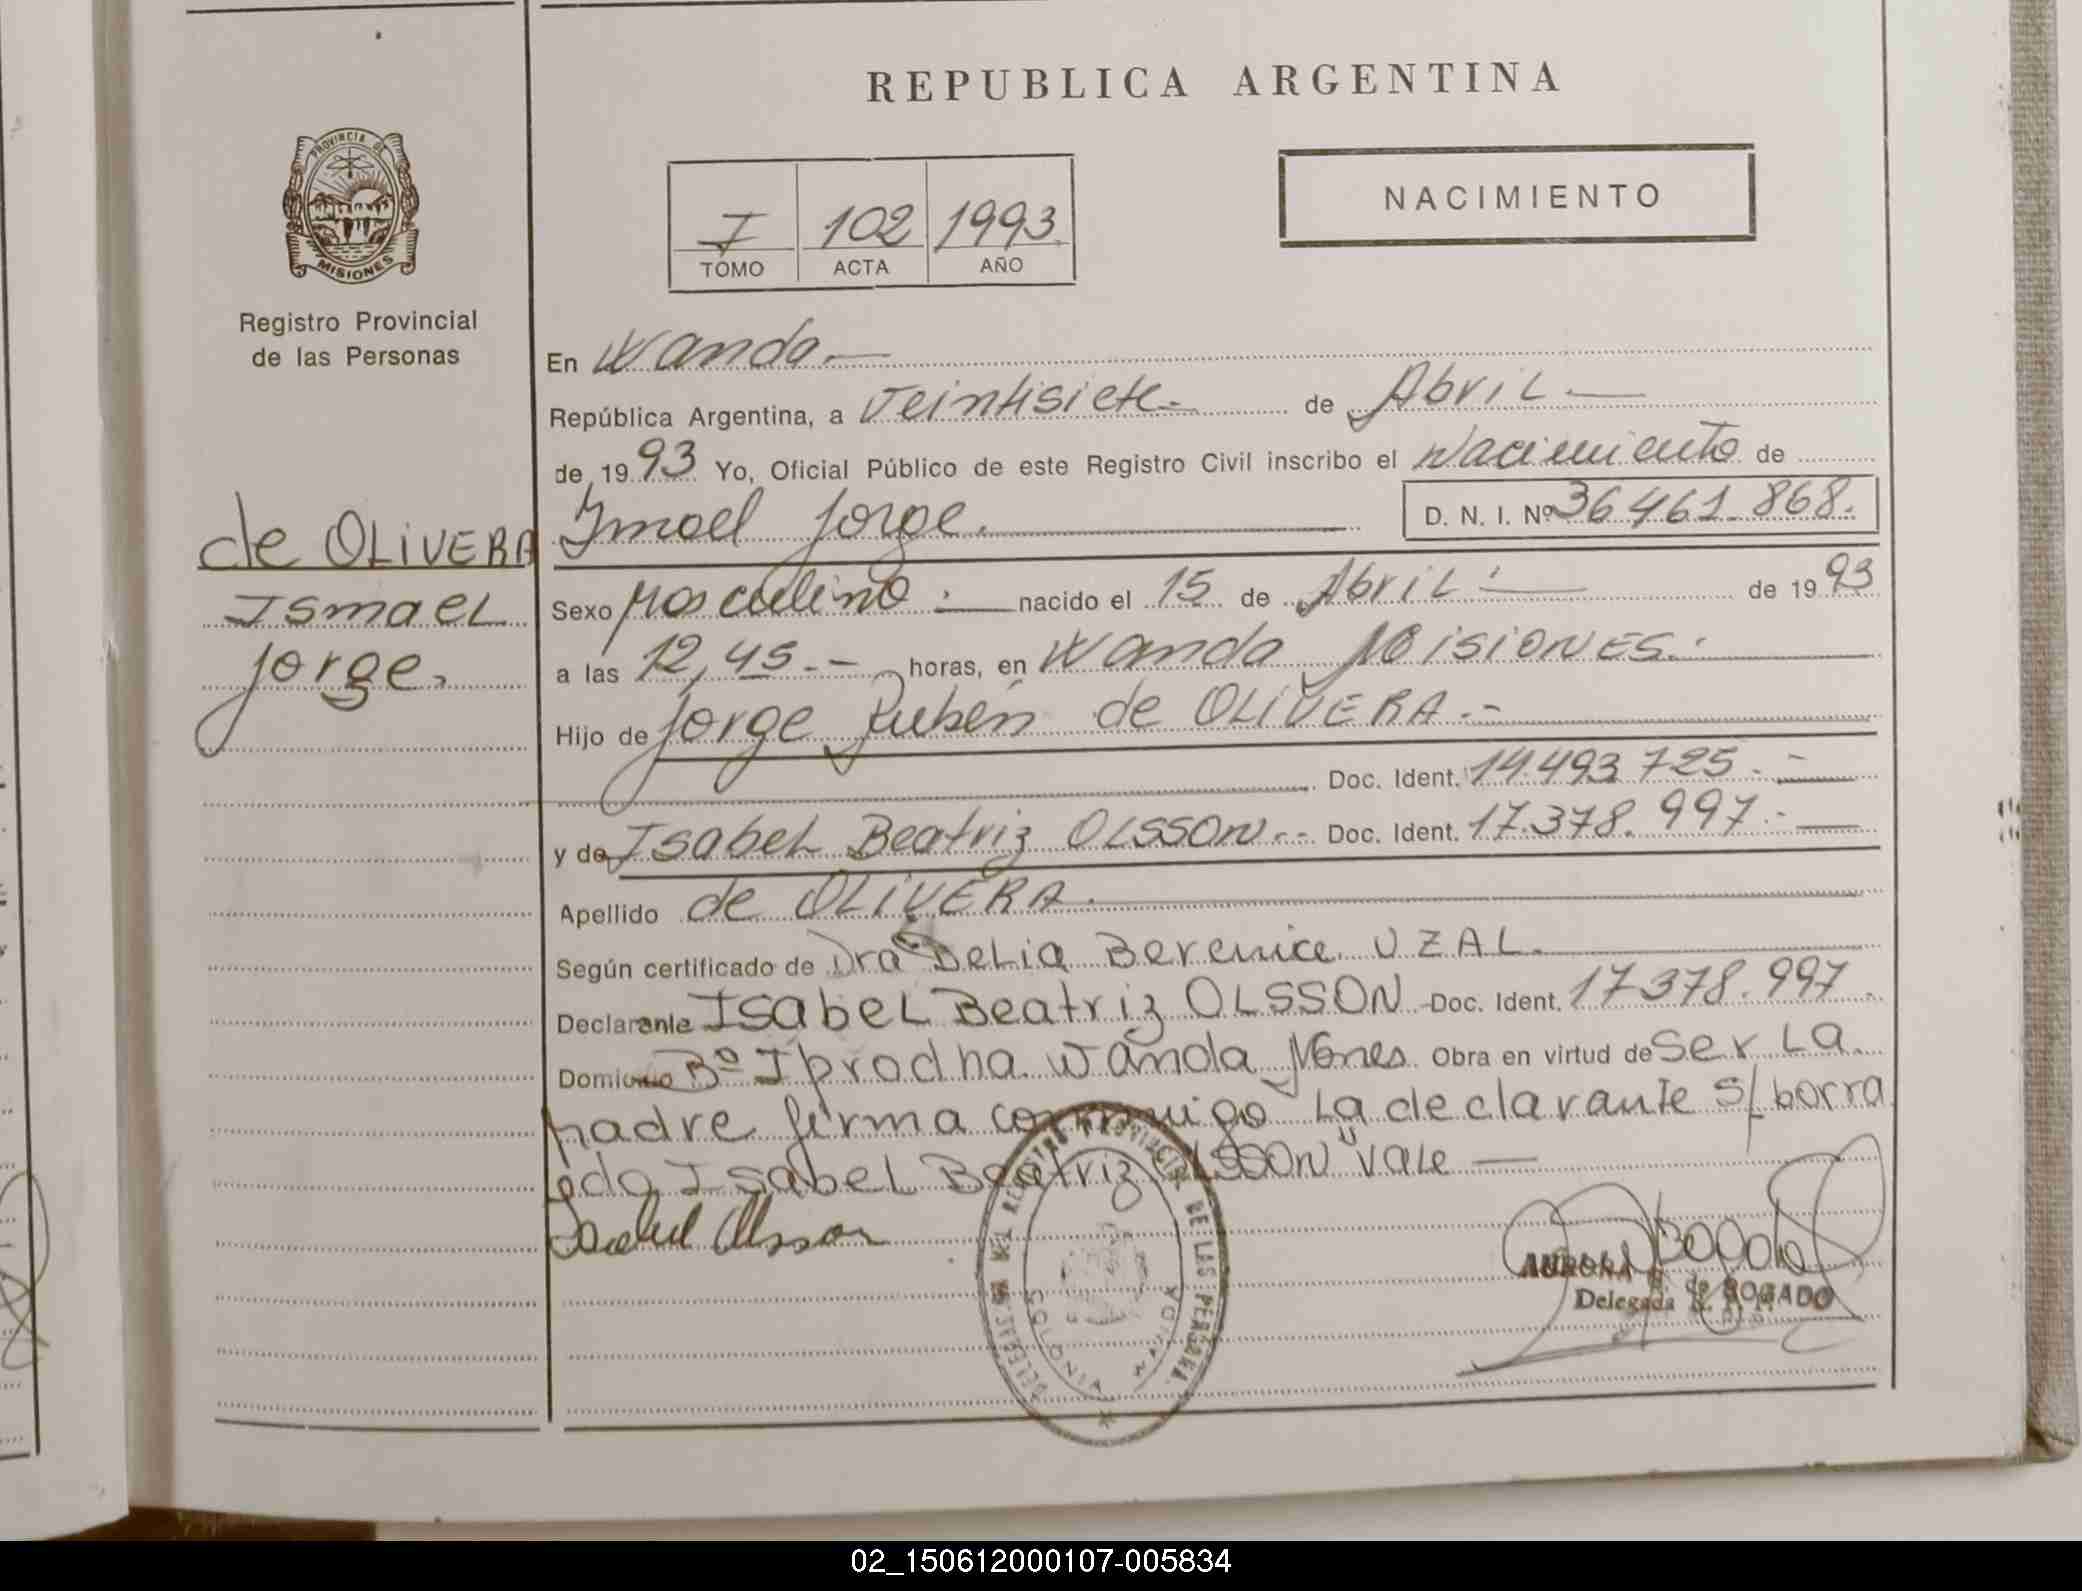 REPUBLICA ARGENTINA
PROVINCIA DE
MISIONES
Registro Provincial
de las Personas
I 102 1993
TOMO ACTA AÑO
NACIMIENTO
de OLIVERA
Ismael
Jorge.
En Wanda.—
República Argentina, a Veintisiete.- de Abril —
de 1993 Yo, Oficial Público de este Registro Civil inscribo el Nacimiento de
Ismael Jorge. D. N. I. Nº 36461.868.
Sexo Masculino . — nacido el 15 de Abril — de 1993
a las 12,45.- horas, en Wanda MISIONES.
Hijo de Jorge Rubén de OLIVERA.-
Doc. Ident. 14.493.725.-
y de Isabel Beatriz OLSSON.- Doc. Ident. 17.378.997.-
Apellido de OLIVERA.
Según certificado de Dra Delia Berenice UZAL.
Declarante Isabel Beatriz OLSSON Doc. Ident. 17.378.997.
Domicilio Bº Iprodha Wanda Mnes. Obra en virtud de Ser La
Madre firma conmigo La declarante s/borra
Isabel Beatriz OLSSON Vale —
Isabel Olsson
DE LAS PERSONAS
COLONIA WANDA
AURORA de BOGADO
Delegada
02_150612000107-005834